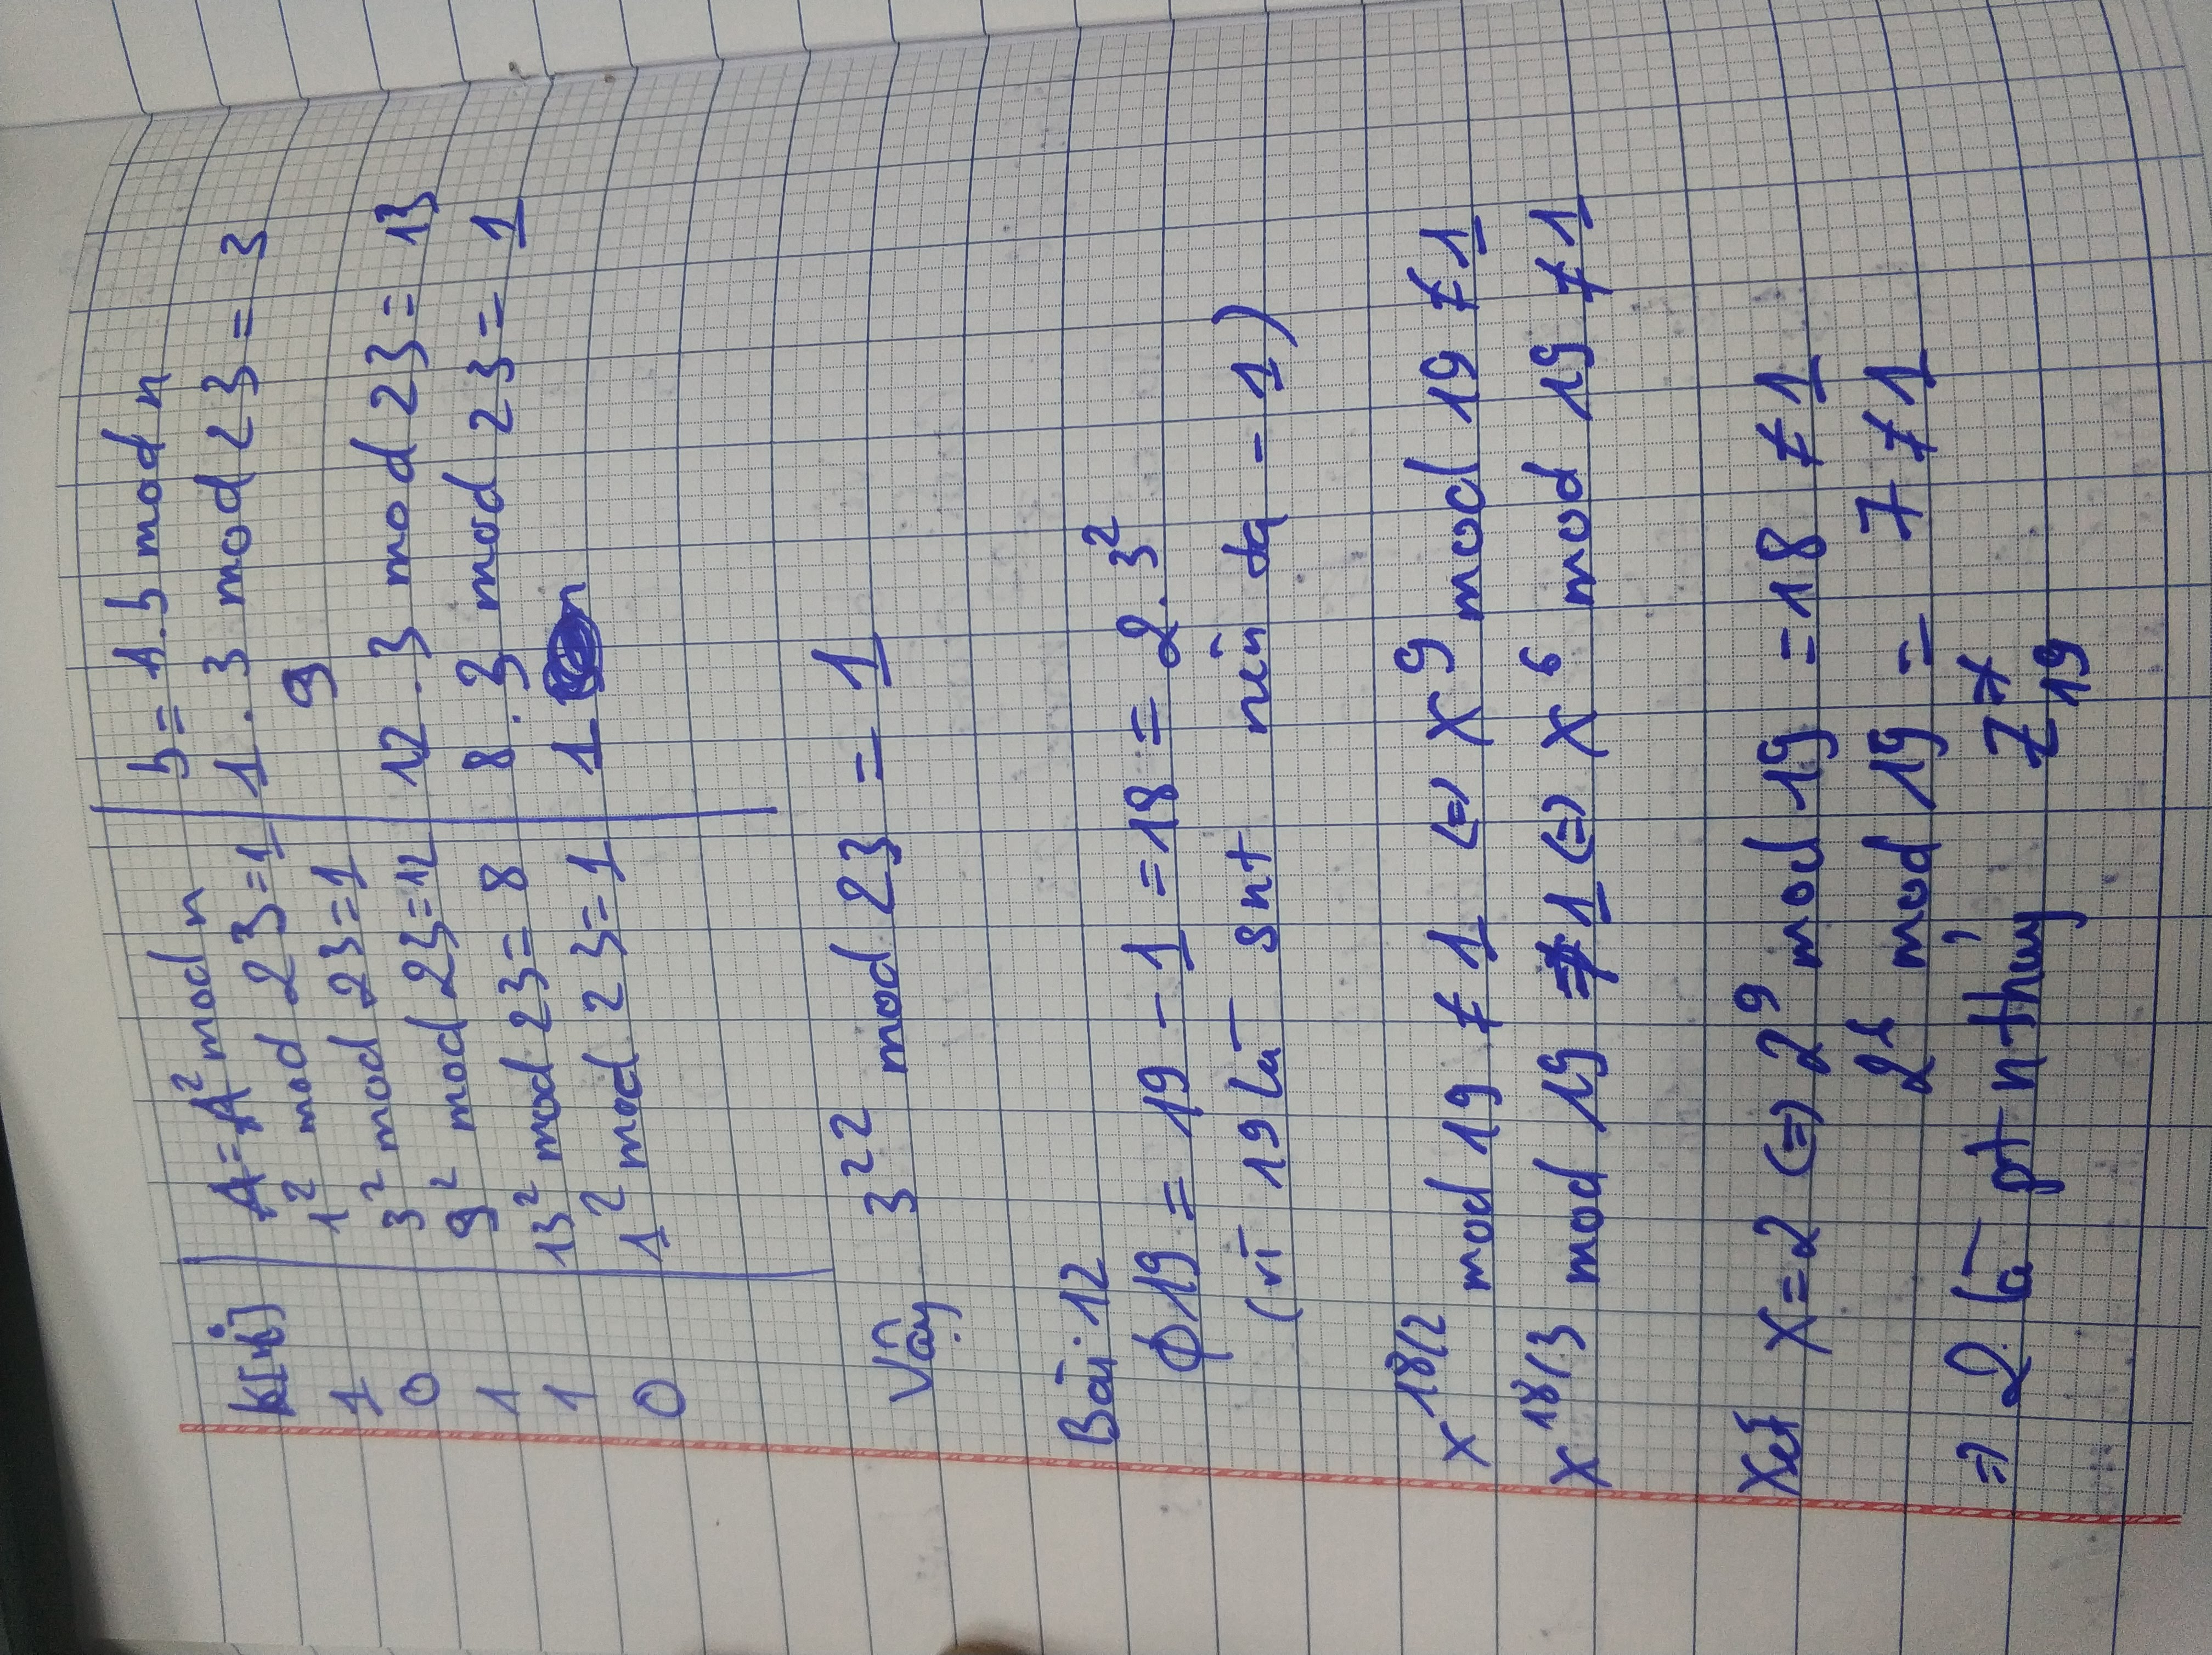 k[i] A = A² mod n b = A.b mod n
1 1² mod 23 = 1 1 . 3 mod 23 = 3
0 3² mod 23 = 1 9
1 9² mod 23 = 12 12 . 3 mod 23 = 13
1 13² mod 23 = 8 8 . 3 mod 23 = 1
0 1² mod 23 = 1 1
Vậy 3²² mod 23 = 1
Bài 12
ϕ19 = 19 - 1 = 18 = 2.3²
(vì 19 là snt nên ta - 1)
x^18/2 mod 19 ≠ 1 (=) x⁹ mod 19 ≠ 1
x^18/3 mod 19 ≠ 1 (=) x⁶ mod 19 ≠ 1
Xét x = 2 (=) 2⁹ mod 19 = 18 ≠ 1
2⁶ mod 19 = 7 ≠ 1
=) 2 là pt n thủy Z*₁₉